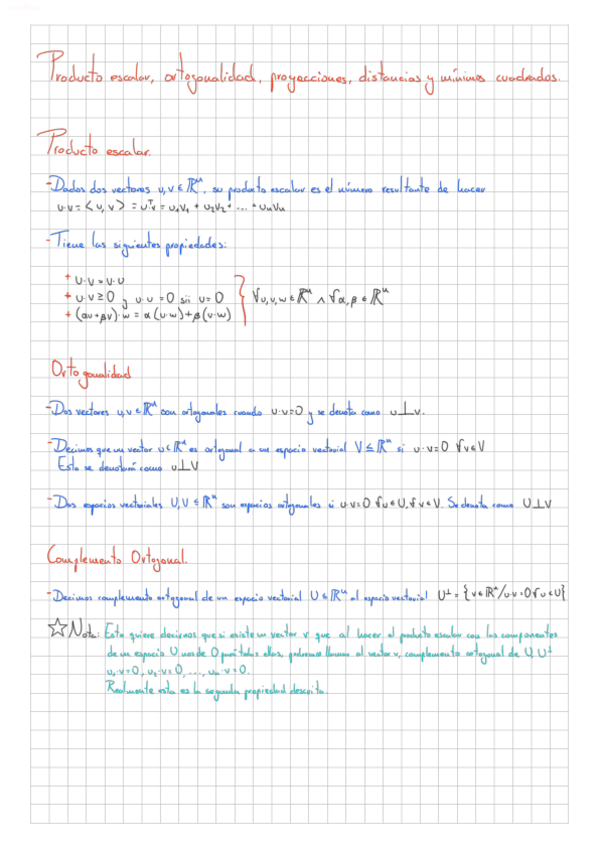 Producto escalar, ortogonalidad, proyecciones, distancias y mínimos cuadrados.
Producto escalar.
- Dados dos vectores u, v ∈ ℝⁿ, su producto escalar es el número resultante de hacer
u·v = <u, v> = uᵀv = u₁v₁ + u₂v₂ + ... + uₙvₙ
- Tiene las siguientes propiedades:
+ u·v = v·u
+ u·v ≥ 0 y u·u = 0 sii u = 0
+ (αu+βv)·w = α(u·w)+β(v·w)
∀u,v,w ∈ ℝⁿ ∧ ∀α,β ∈ ℝⁿ
Ortogonalidad
- Dos vectores u,v ∈ ℝⁿ son ortogonales cuando u·v=0 y se denota como u⊥v.
- Decimos que un vector u∈ℝⁿ es ortogonal a un espacio vectorial V≤ℝⁿ si u·v=0 ∀v∈V
Esto se denotará como u⊥V
- Dos espacios vectoriales U,V ≤ ℝⁿ son espacios ortogonales si u·v=0 ∀u∈U, ∀v∈V. Se denota como U⊥V
Complemento Ortogonal.
- Decimos complemento ortogonal de un espacio vectorial U≤ℝⁿ al espacio vectorial U⊥ = {v∈ℝⁿ/u·v=0 ∀u∈U}
☆Nota: Esto quiere decirnos que si existe un vector v que al hacer el producto escalar con los componentes
de un espacio U nos de 0 para todos ellos, podremos llamar al vector v, complemento ortogonal de U, U⊥
u₁·v=0, u₂·v=0, ..., uₙ·v=0.
Realmente esta es la segunda propiedad descrita.